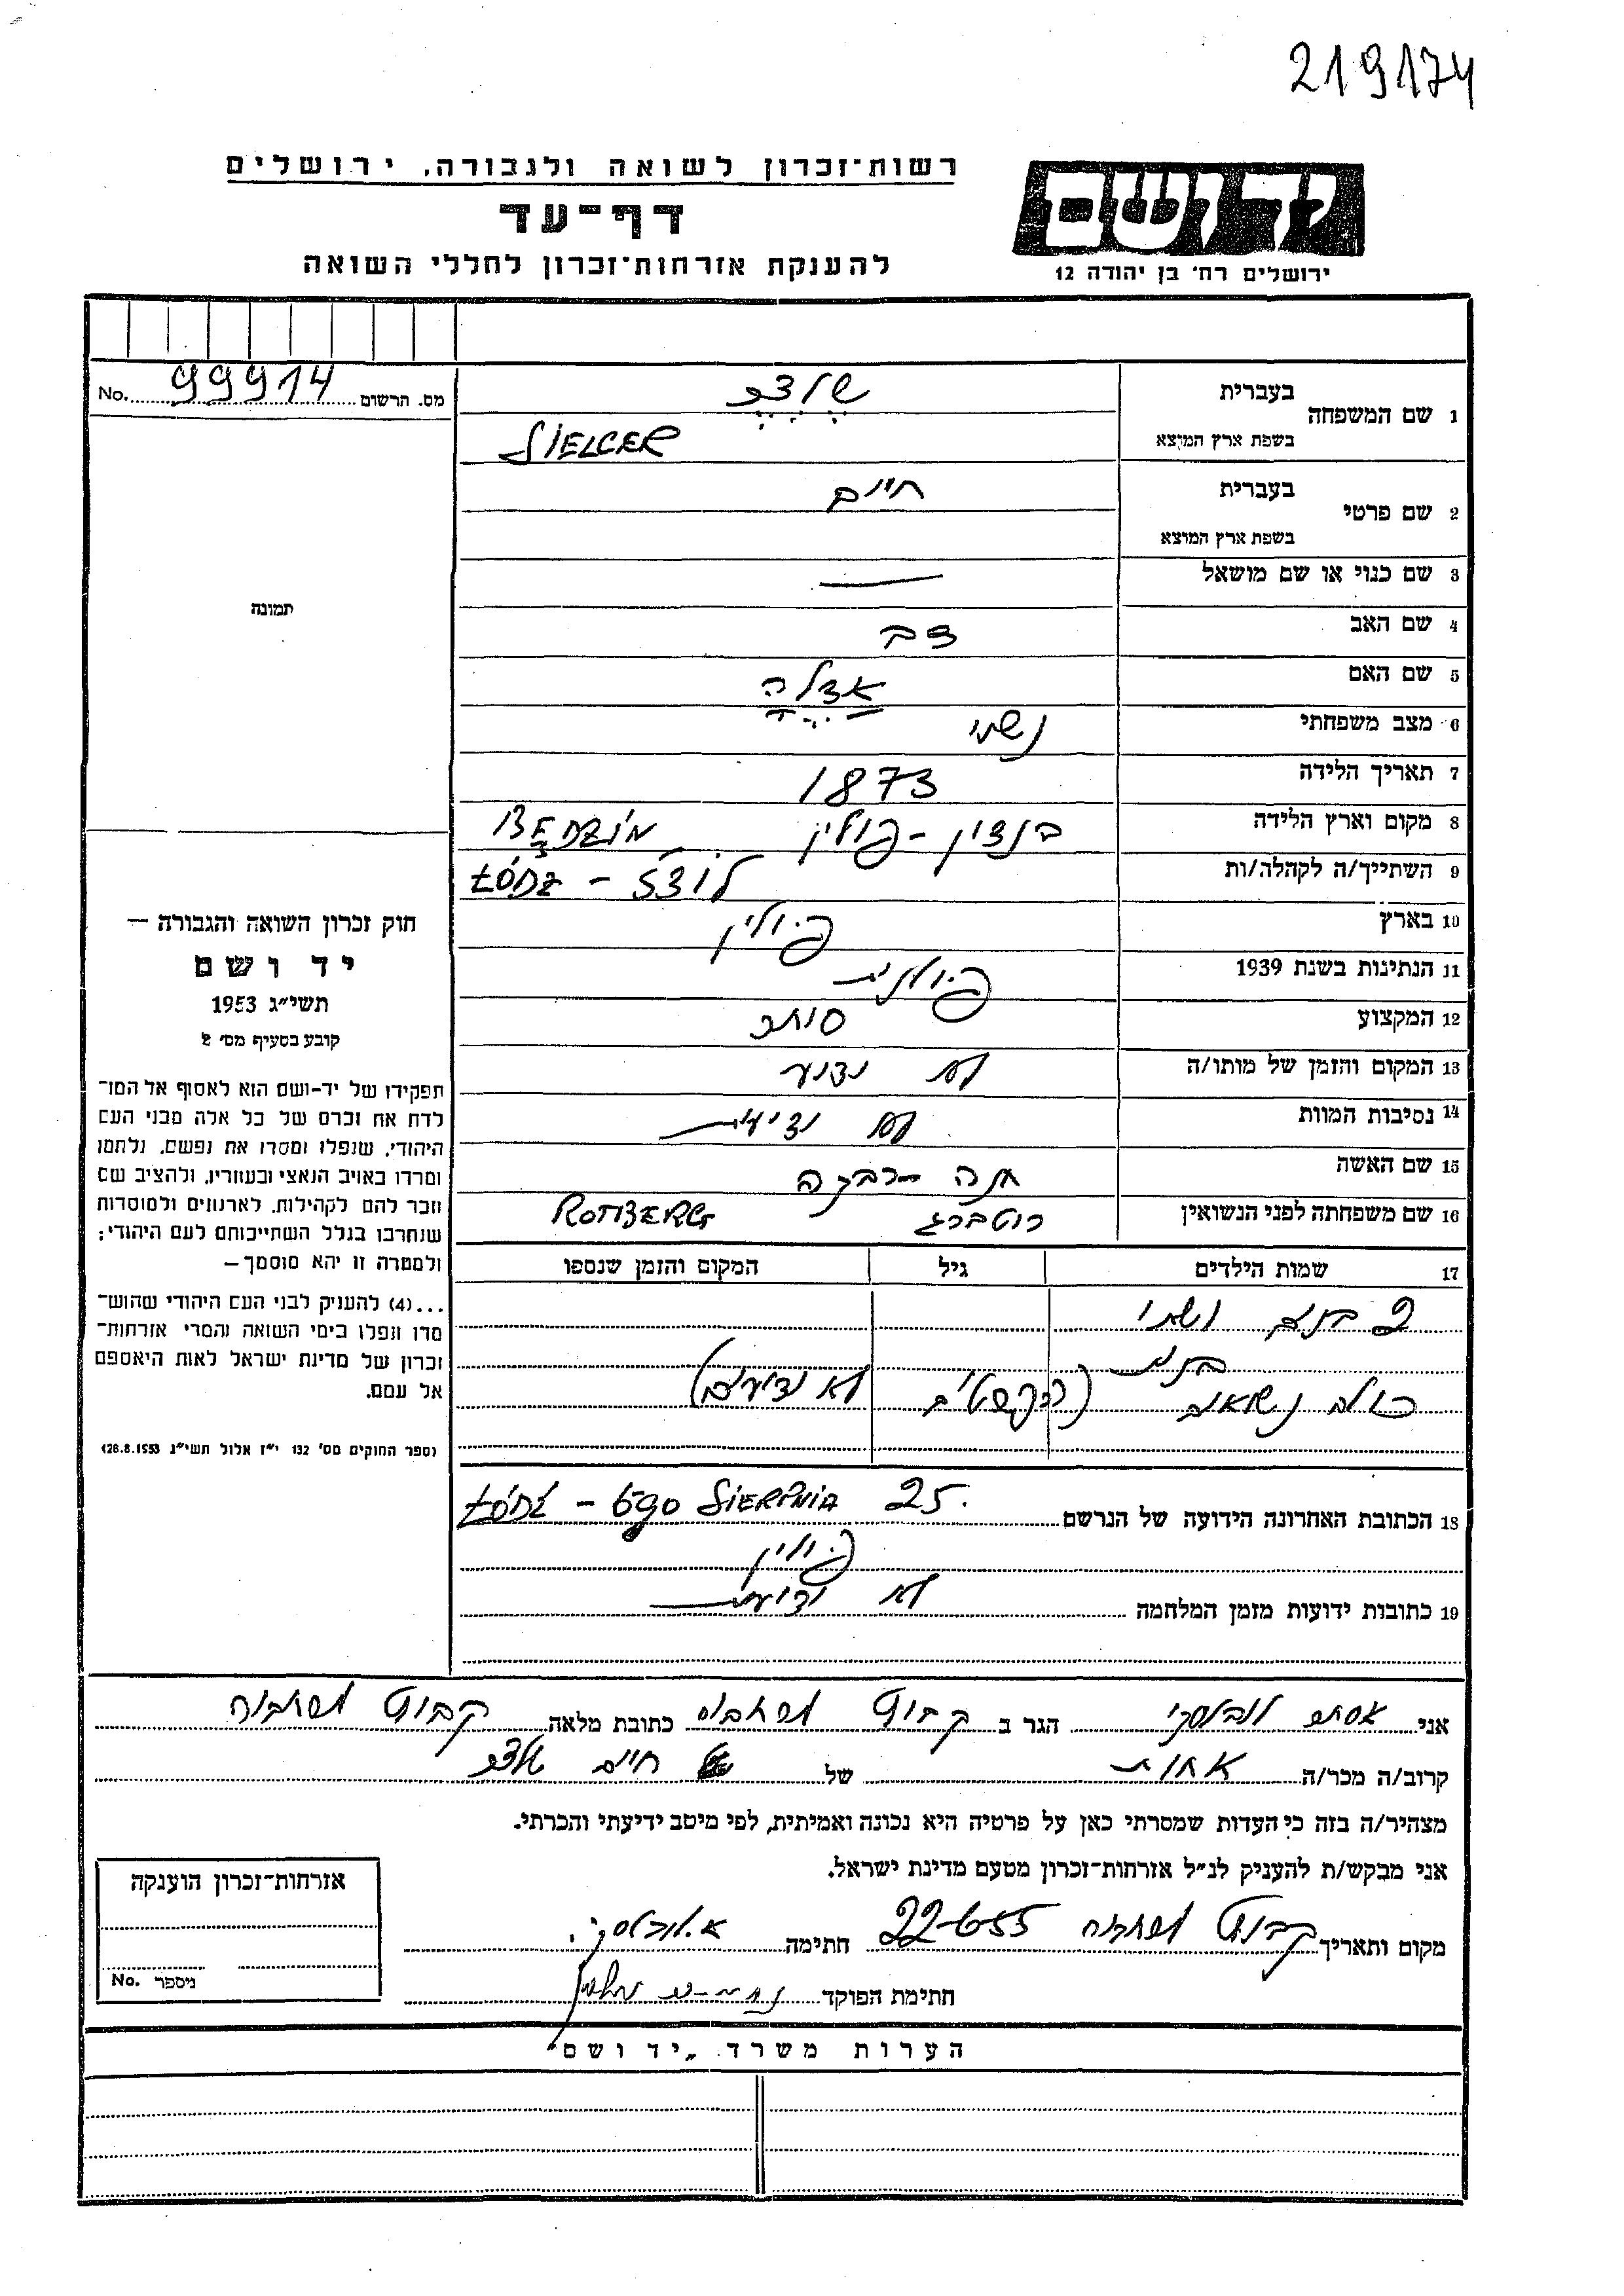 219174
רשות־זכרון לשואה ולגבורה, ירושלים
ידושם
דף־עד
להענקת אזרחות־זכרון לחללי השואה
ירושלים רח' בן יהודה 12
מס. הרשום 99914 No.
1 שם המשפחה
בעברית שלצר
בשפת ארץ המוצא SIELCER
2 שם פרטי
בעברית חיים
בשפת ארץ המוצא
3 שם כנוי או שם מושאל —
תמונה
4 שם האב
5 שם האם אצלה
6 מצב משפחתי נשוי
7 תאריך הלידה 1873
8 מקום וארץ הלידה בנדין - פולין BĘDZIN
9 השתייך/ה לקהלה/ות לודז - ŁÓDŹ
10 בארץ פולין
11 הנתינות בשנת 1939 פולנית
12 המקצוע סוחר
13 המקום והזמן של מותו/ה לא ידוע
14 נסיבות המוות לא ידועות
15 שם האשה חנה - רבקה
16 שם משפחתה לפני הנשואין רוטברג ROTBERG
17 שמות הילדים גיל המקום והזמן שנספו
2 בנים ושתי
בנות
כולם נשואים (הפרטים לא ידועים)
18 הכתובת האחרונה הידועה של הנרשם ŁÓDŹ - 6go SIERPNIA 25.
פולין
19 כתובות ידועות מזמן המלחמה לא ידועות
חוק זכרון השואה והגבורה —
יד ושם
תשי״ג 1953
קובע בסעיף מס' 2
תפקידו של יד-ושם הוא לאסוף אל המו־
לדת את זכרם של כל אלה מבני העם
היהודי, שנפלו ומסרו את נפשם, נלחמו
ומרדו באויב הנאצי ובעוזריו, ולהציב שם
וזכר להם לקהילות, לארגונים ולמוסדות
שנחרבו בגלל השתייכותם לעם היהודי;
ולמטרה זו יהא מוסמך—
...(4) להעניק לבני העם היהודי שהוש־
מדו ונפלו בימי השואה והמרי אזרחות־
זכרון של מדינת ישראל לאות היאספם
אל עמם.
(ספר החוקים מס' 132 י״ז אלול תשי״ג 28.8.1953)
אני אסתר הגר ב קבוץ כתובת מלאה קבוץ
קרוב/ה מכר/ה אחות של חיים שלצר
מצהיר/ה בזה כי העדות שמסרתי כאן על פרטיה היא נכונה ואמיתית, לפי מיטב ידיעתי והכרתי.
אני מבקש/ת להעניק לנ״ל אזרחות־זכרון מטעם מדינת ישראל.
מקום ותאריך קבוץ 22-6-55 חתימה
חתימת הפוקד
אזרחות־זכרון הוענקה
מיספר No.
הערות משרד „יד ושם״